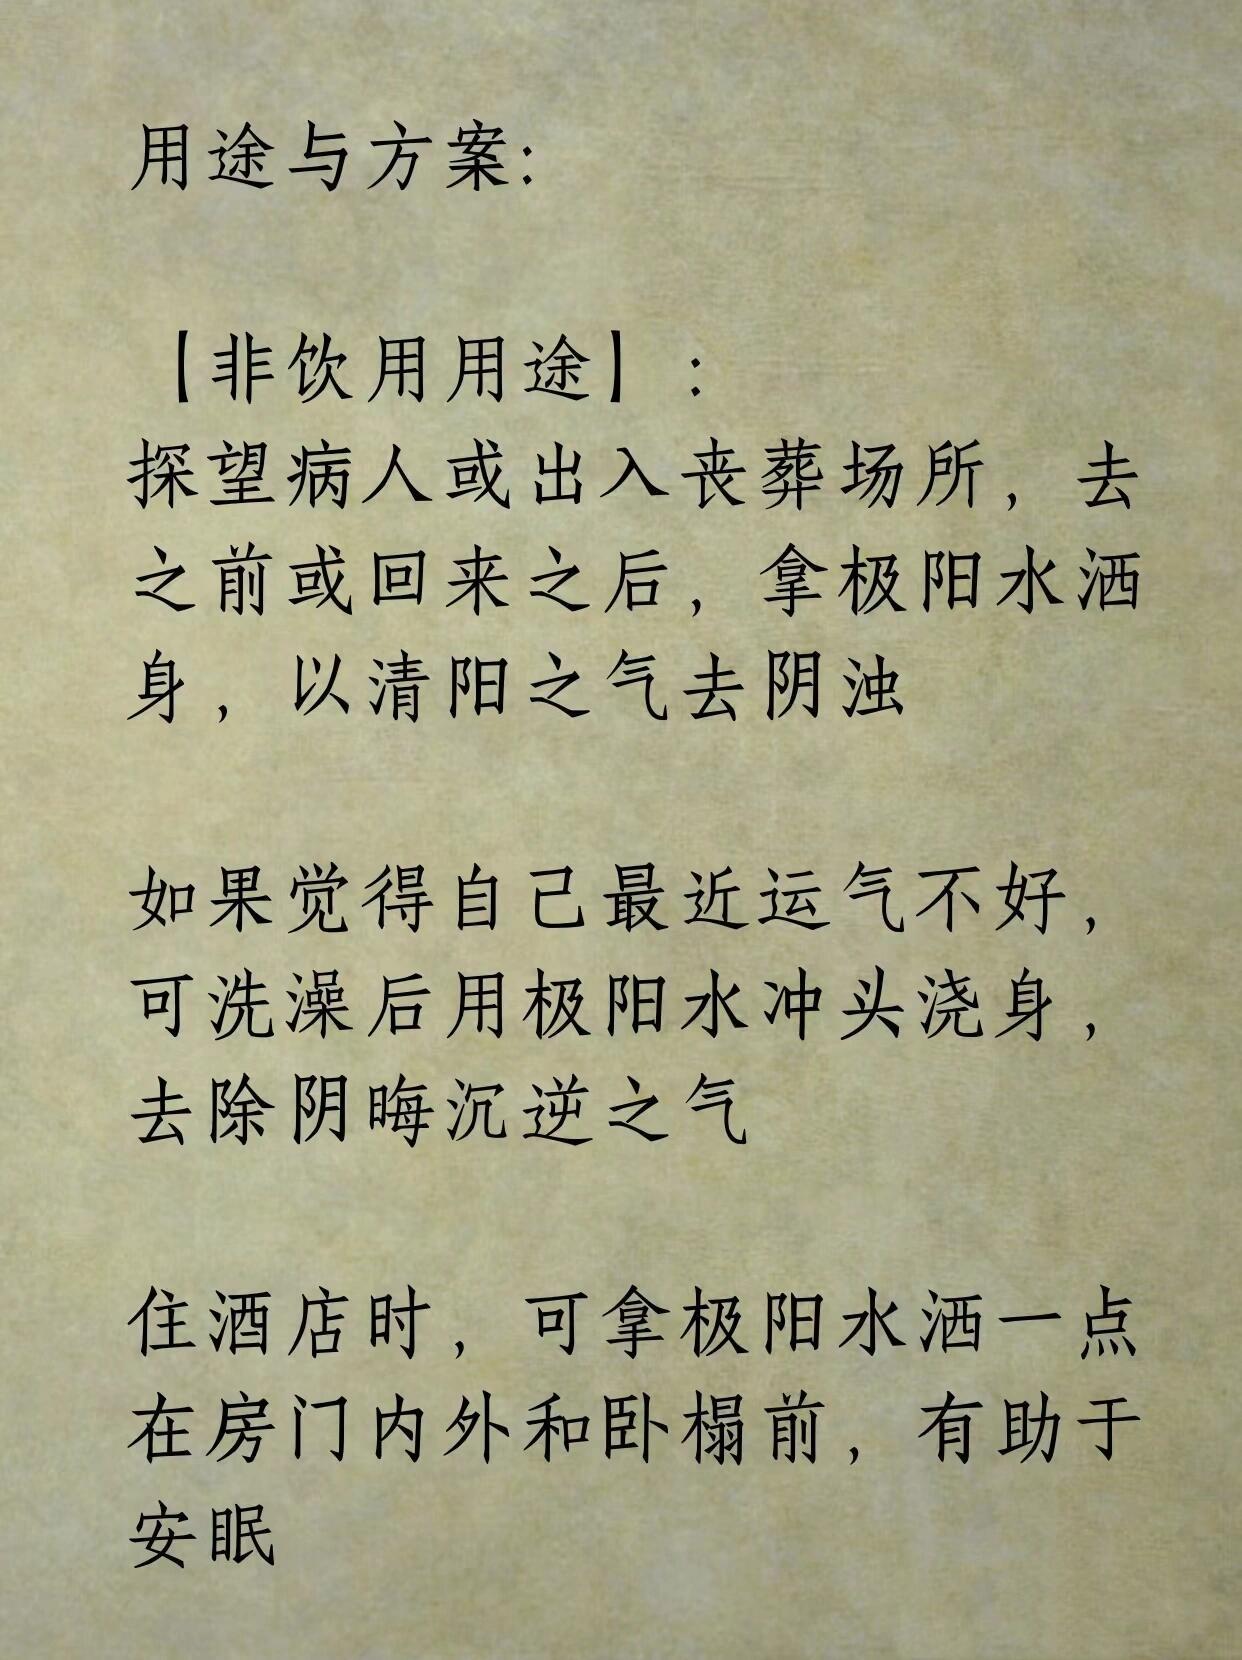 用途与方案:
【非饮用用途】:
探望病人或出入丧葬场所,去
之前或回来之后,拿极阳水洒
身,以清阳之气去阴浊
如果觉得自己最近运气不好,
可洗澡后用极阳水冲头浇身,
去除阴晦沉逆之气
住酒店时,可拿极阳水洒一点
在房门内外和卧榻前,有助于
安眠